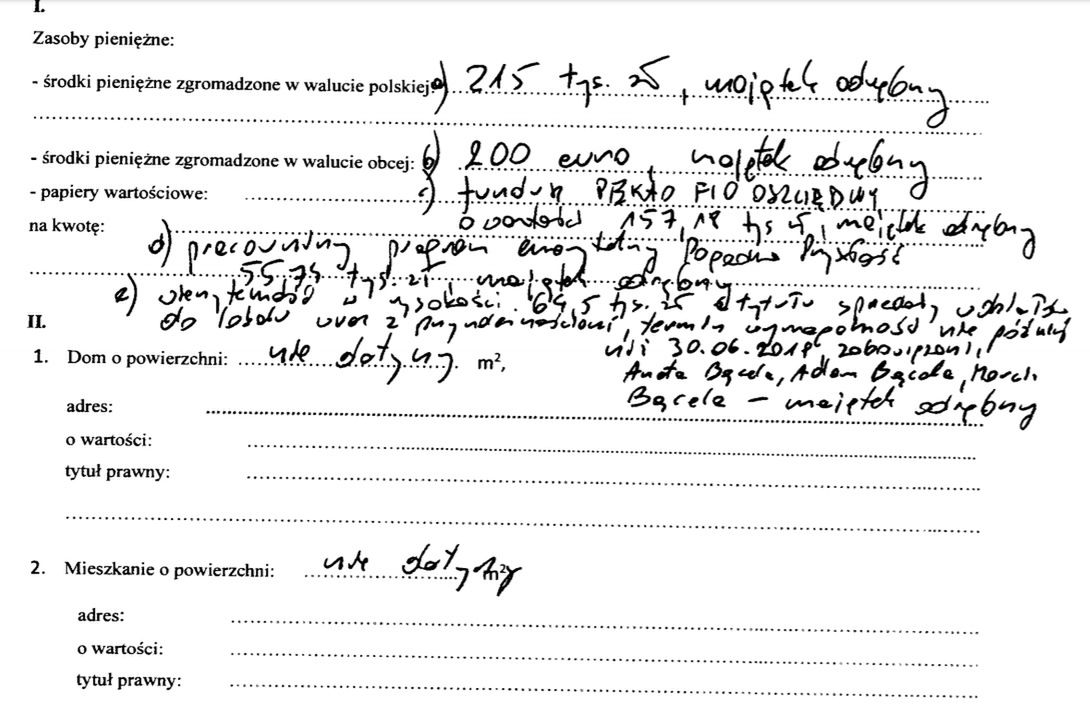 I.
Zasoby pieniężne:
- środki pieniężne zgromadzone w walucie polskiej: a) 215 tys. zł, majątek odrębny
- środki pieniężne zgromadzone w walucie obcej: b) 200 euro, majątek odrębny
- papiery wartościowe: c) fundusz FIO
na kwotę: o wartości 157,18 tys zł, majątek odrębny
d) pracowniczy program emerytalny
55,75 tys. zł, majątek odrębny
e) wierzytelność w wysokości 69,5 tys. zł z tytułu sprzedaży
II.
do lokalu wraz z przynależnościami, termin wymagalności nie później
1. Dom o powierzchni: nie dotyczy m²,
niż 30.06.2018, zobowiązani,
Aneta Bącela, Adam Bącela,
adres:
Bącela – majątek odrębny
o wartości:
tytuł prawny:
2. Mieszkanie o powierzchni: nie dotyczy m²
adres:
o wartości:
tytuł prawny: